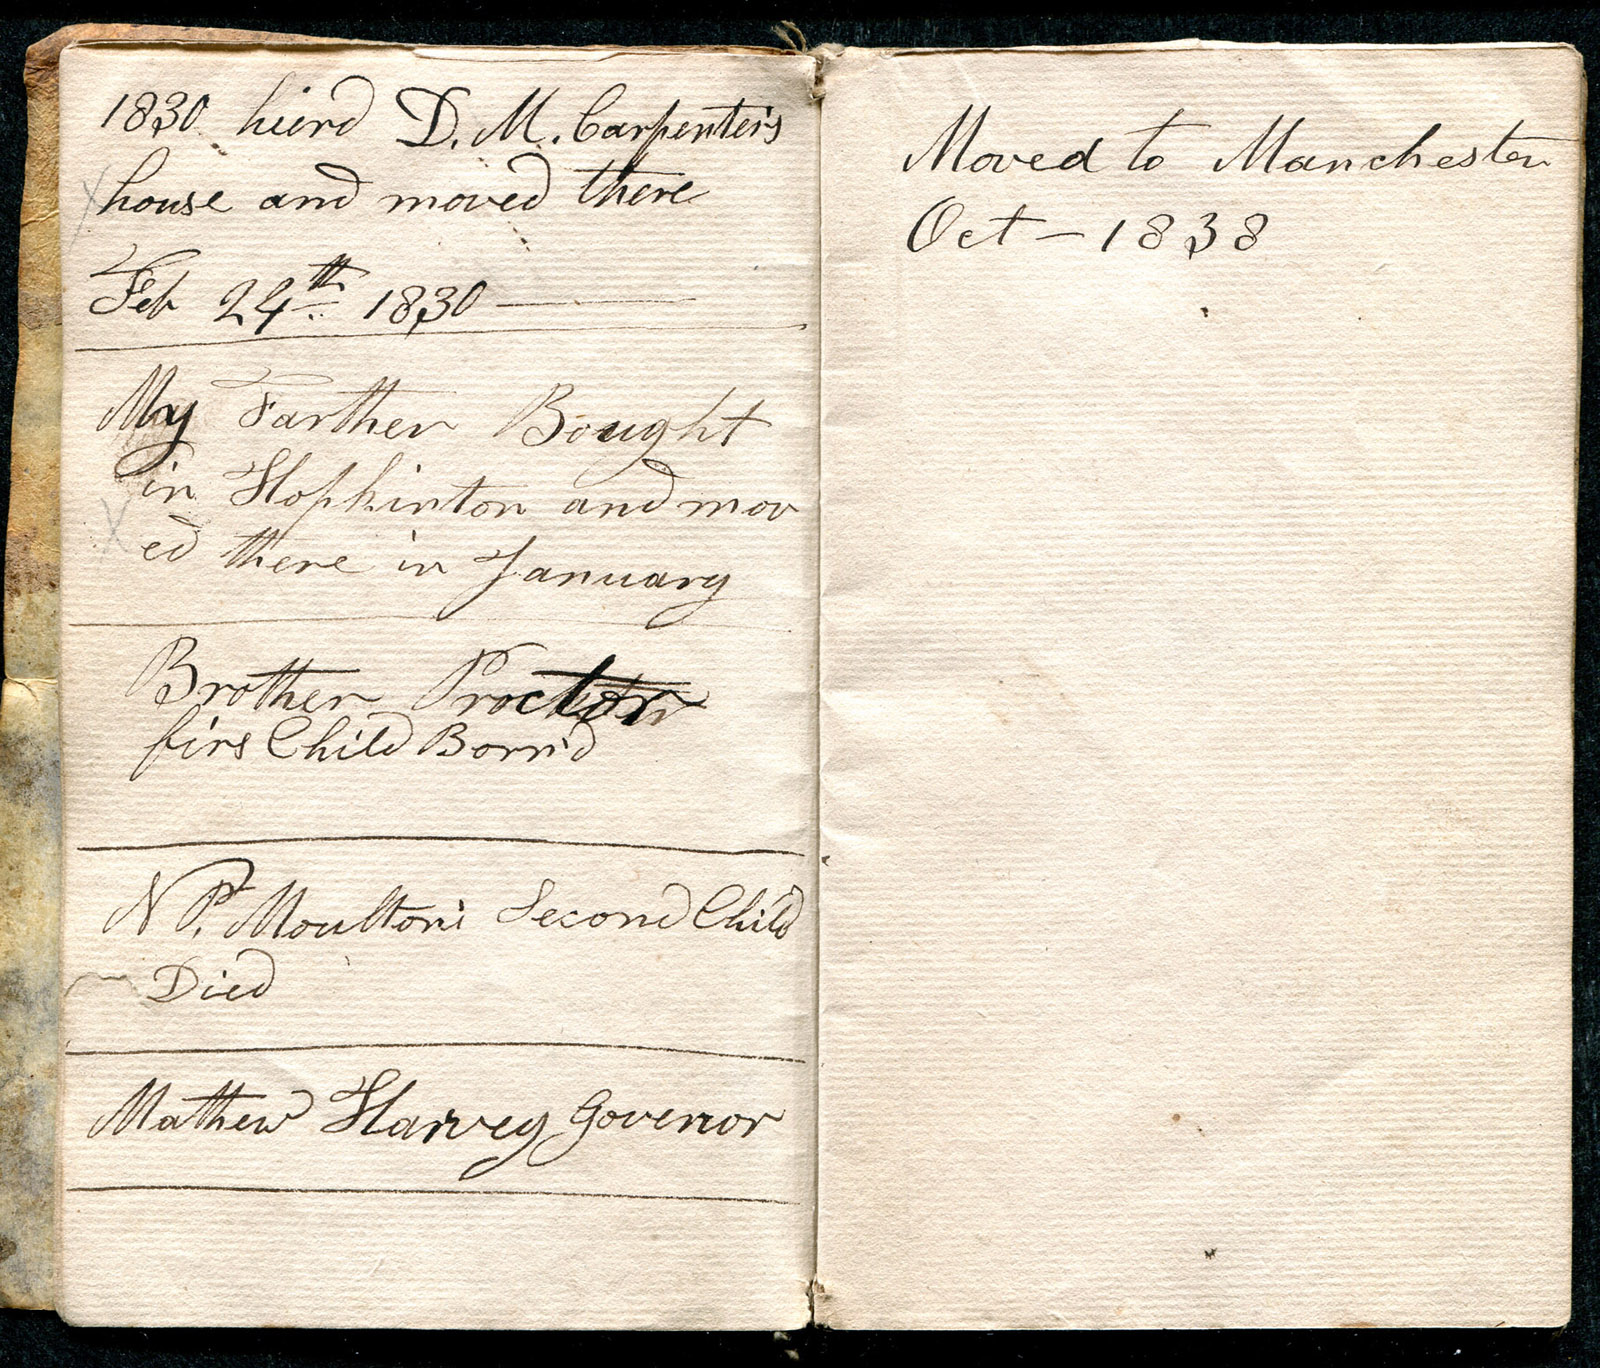 1830 hierd D. M. Carpenter's
house and moved there
Feb 24th 1830
My Farther Bought
in Hopkinton and mov
ed there in January
Brother Proctor
firs Child Born'd
N P. Moulton's Second Child
Died
Mathew Harvey Governor
Moved to Manchester
Oct – 1838